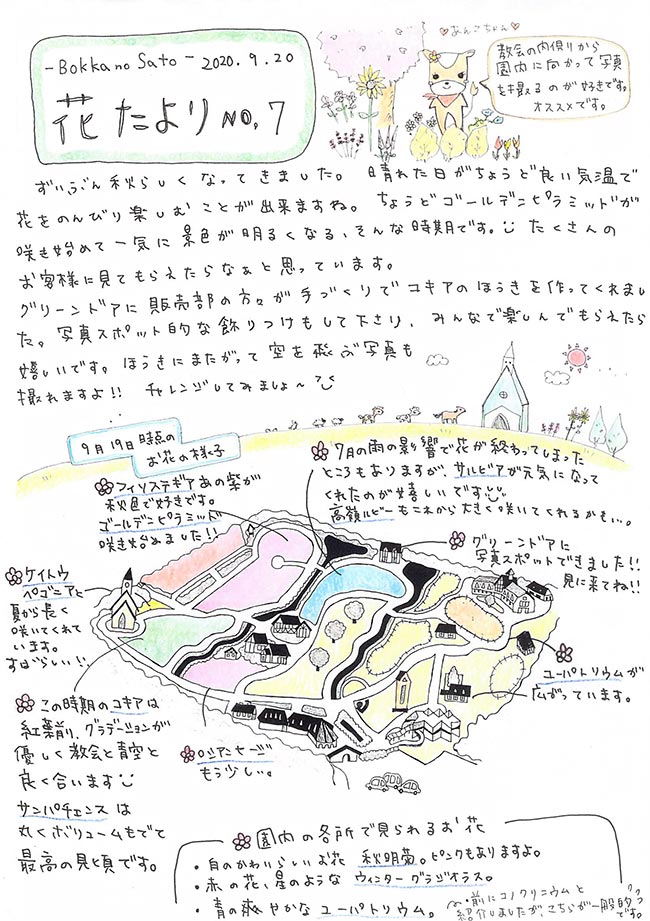 -Bokka no Sato- 2020.9.20
花だより NO.7
♡あんこちゃん♡
教会の内側から
園内に向かって写真
を撮るのが好きです。
オススメです。
ずいぶん秋らしくなってきました。晴れた日がちょうど良い気温で
花をのんびり楽しむことが出来ますね。ちょうどゴールデンピラミッドが
咲き始めて一気に景色が明るくなる、そんな時期です。たくさんの
お客様に見てもらえたらなぁと思っています。
グリーンドアに販売部の方々が手づくりでコキアのほうきを作ってくれまし
た。写真スポット的な飾りつけもして下さり、みんなで楽しんでもらえたら
嬉しいです。ほうきにまたがって空を飛ぶ写真も
撮れますよ!! チャレンジしてみましょ〜
9月19日時点の
お花の様子
フィソステギアあの紫が
秋色で好きです。
ゴールデンピラミッド
咲き始めました!!
7月の雨の影響で花が終わってしまった
ところもありますが、サルビアが元気になって
くれたのが嬉しいです
高嶺ルビーもこれから大きく咲いてくれるかも…。
グリーンドアに
写真スポットできました!!
見に来てね!!
ケイトウ
ベゴニアと
夏から長く
咲いてくれて
います。
すばらしい!!
ユーパトリウムが
広がっています。
この時期のコキアは
紅葉前、グラデーションが
優しく教会と青空と
良く合います
サンパチェンスは
丸くボリュームもでて
最高の見頃です。
ロシアンセージ
もう少し。
園内の各所で見られるお花
・白のかわいらしいお花 秋明菊。ピンクもありますよ。
・赤の花、星のような ウィンターグラジオラス。
・青の爽やかなユーパトリウム。
前にコノクリニウムと
紹介しましたがこちらが一般的
です。